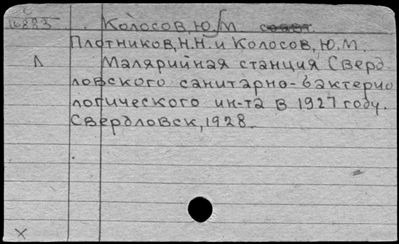 16885 Колосов, Ю.М соавт.
Плотников, Н.Н. и Колосов, Ю.М.
Л Малярийная станция Сверд
ловского санитарно-бактерио
логического ин-та в 1927 году.
Свердловск, 1928.
X